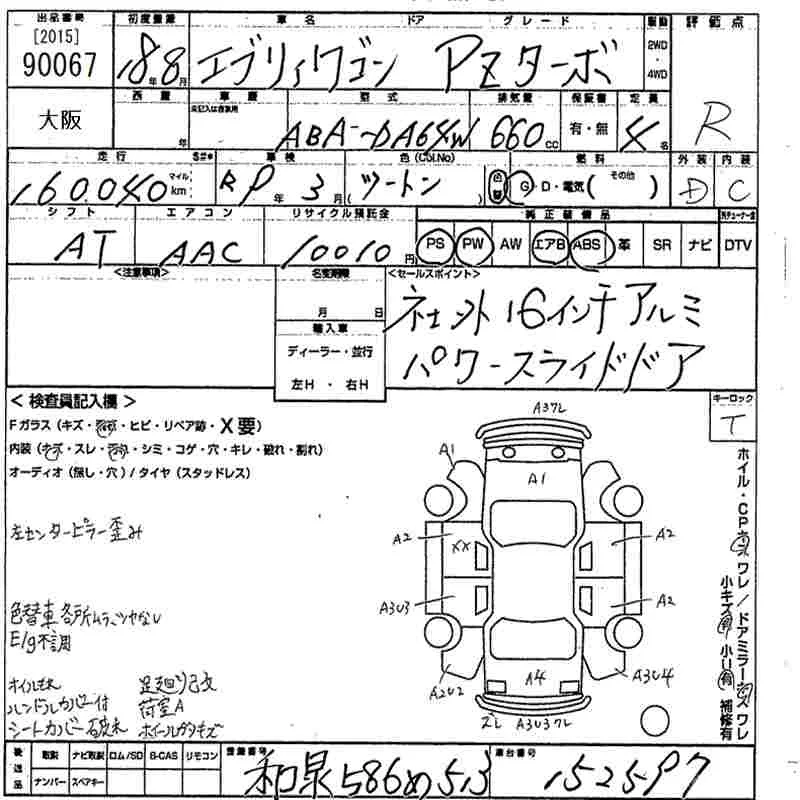 出品番号 初度登録 車名 ドア グレード 駆動 評価点
[2015]
90067 18年8月 エブリィワゴン PZターボ 2WD・4WD R
大阪 西暦 年 車歴 未記入は自家用 型式 ABA-DA64W 排気量 660cc 保証書 有・無 定員 4名
走行 160,040 マイル km S#* 車検 RP年3月 色(Col.No) (ツートン) 色替 燃料 G・D・電気( その他 ) 外装 D 内装 C
シフト AT エアコン AAC リサイクル預託金 10010円 純正装備品 PS PW AW エアB ABS 革 SR ナビ DTV
<注意事項> 名変期限 月 日 <セールスポイント>
輸入車 ディーラー・並行 左H・右H
社外16インチアルミ
パワースライドドア
<検査員記入欄> キーロック T
Fガラス(キズ・・ヒビ・リペア跡・X要)
内装(キズ・スレ・・シミ・コゲ・穴・キレ・破れ・割れ)
オーディオ(無し・穴)/タイヤ(スタッドレス)
左センターピラー歪み
色替車各所ムラ、ツヤなし
E/g不調
オイルモレ 足廻りサビ
ハンドルカバー付 荷室A
シートカバー破れ ホイールガリキズ
A37L
A1
A1
A2 XX A2
A3U3 A2
A2U2 A4 A3U4
ズレ A3U37L
ホイル・CPキズワレ/ドアミラーキズワレ
小キズ有 小U有 補修有
後送品 取説 ナビ取説 ロム/SD B-CAS リモコン 登録番号 車台番号
ナンバー スペアキー 和泉586め513 152597